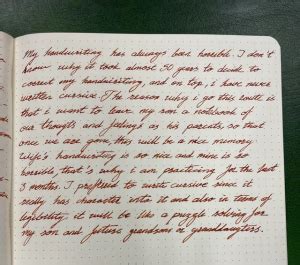 My handwriting has always been horrible. I don't
know why it took almost 50 years to decide to
correct my handwriting, and on top, i have never
written cursive. The reason why i go this route is
that i want to leave my son a notebook of
our thougts and feelings as his parents so that
once we are gone, this will be a nice memory.
Wife's handwriting is so nice and mine is so
horrible, that's why i am practicing for the last
3 months. I preffered to write cursive since it
really has character into it and also in terms of
legibility. it will be like a puzzle solving for
my son and future grandsons or granddaughters.